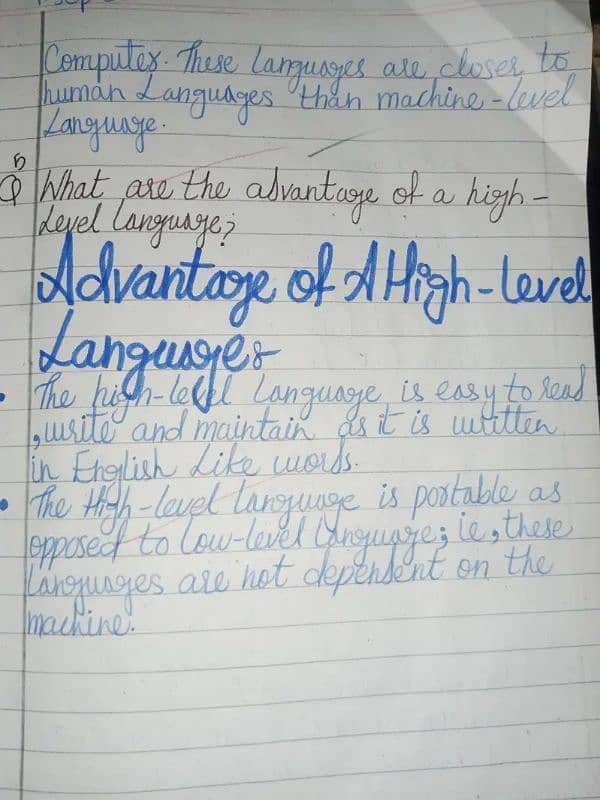 Computer. These languages are closer to
human Languages than machine-level
Language.
5
Q What are the advantage of a high-
Level Language?
Advantage of A High-level
Language:-
• The high-level Language is easy to read
, write and maintain as it is written
in English Like words.
• The High-level language is portable as
opposed to low-level language; ie, these
Languages are not dependent on the
machine.